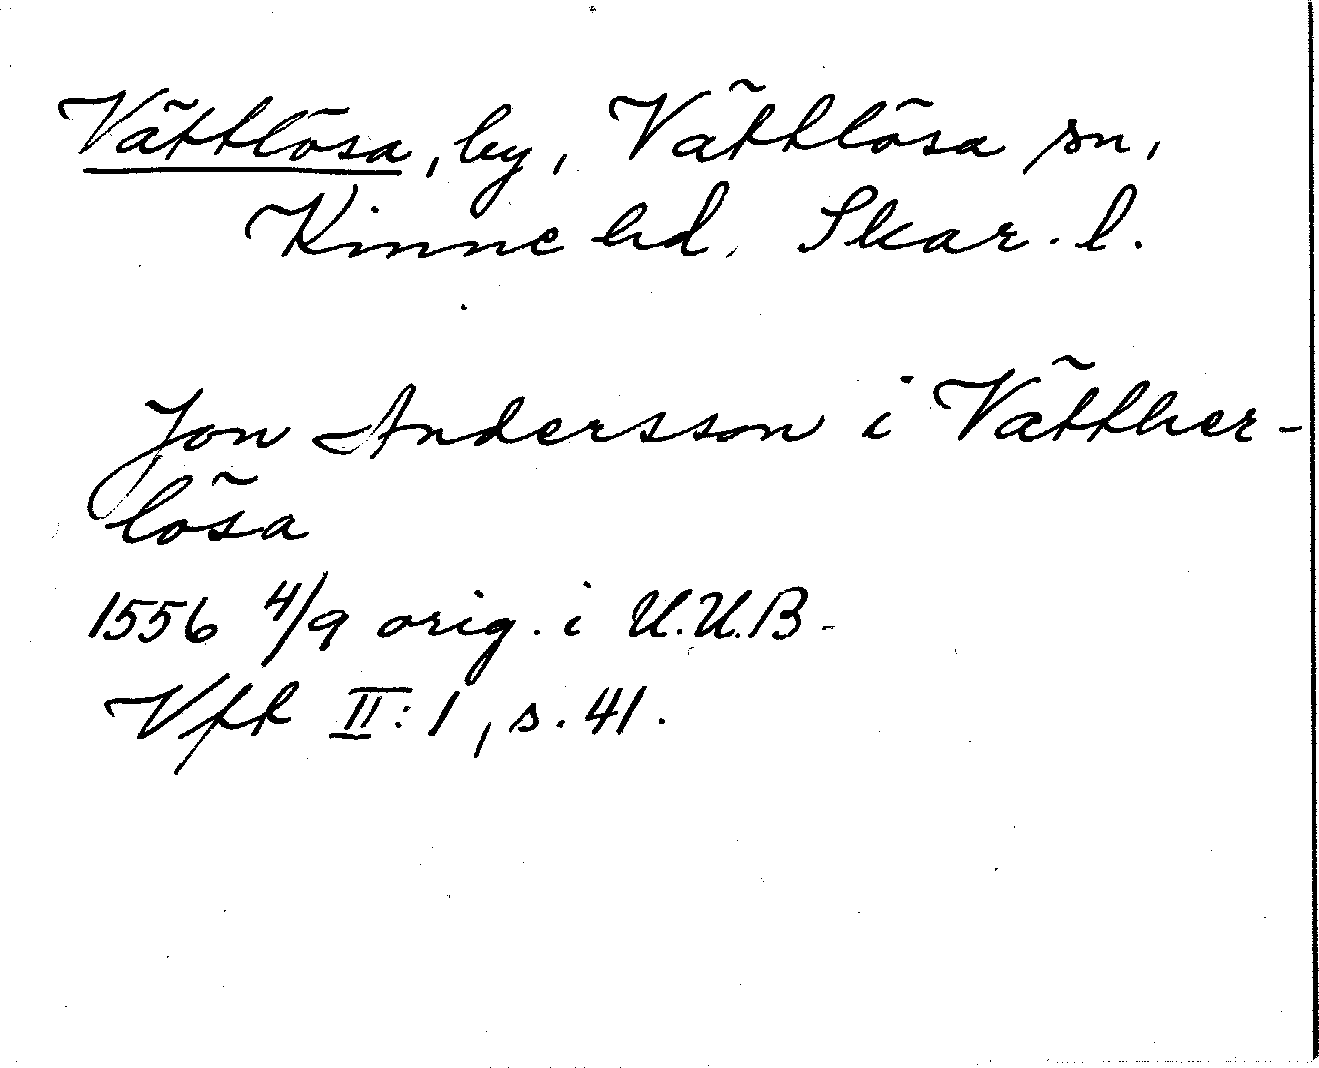 Vättlösa, by, Vättlösa sn,
Kinne hd, Skar. l.
Jon Andersson i Vätther-
lösa
1556 4/9 orig. i U.U.B.
Vfk II:1, s. 41.